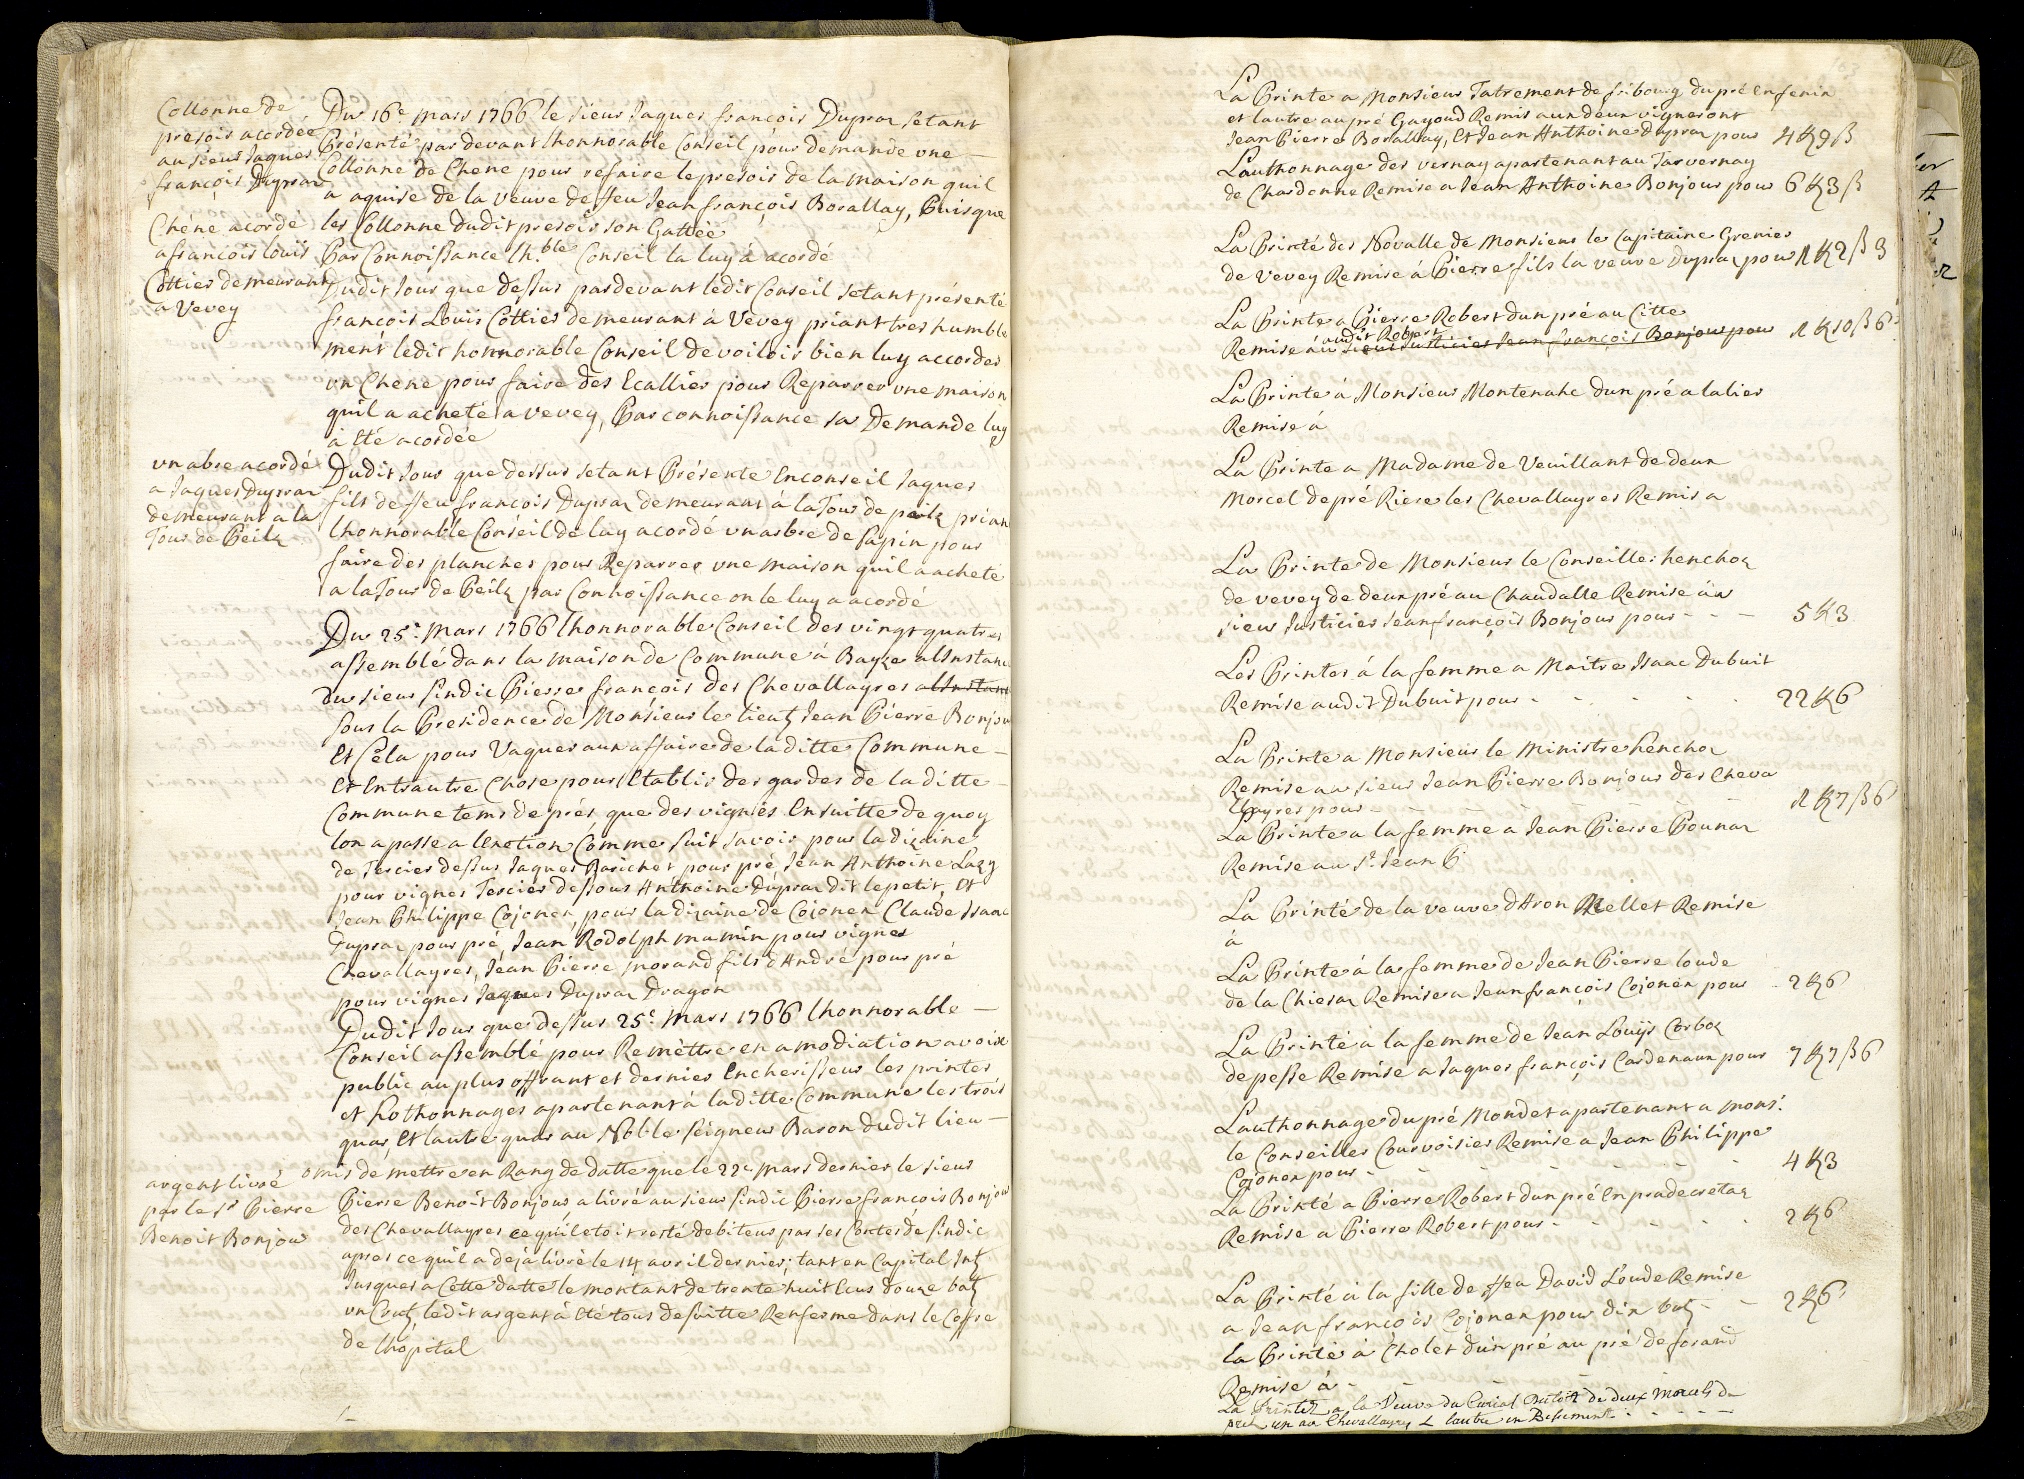 Collonne de
presoir acordée
au sieur Jaques
françois Dupraz
Du 16e mars 1766 le sieur Jaques françois Dupraz setant
Présenté par devant lhonnorable Conseil pour demande une
Collonne de Chene pour refaire le presoir de la maison quil
a aquise de la veuve de ffeu Jean françois Borallay, Puisque
les Collonne dudit presoir son Gattée
Par Connoissance lh.ble Conseil la luy à acordé
Chéne acordé
a francois louis
Cottier demeurant
a Vevey
Dudit Jour que dessus par devant ledit Conseil setant présenté
françois Louis Cottier demeurant à Vevey priant tres humble
ment ledit honnorable Conseil de voiloir bien luy accorder
un Chene pour faire des Ecallier pour Reparrer une maison
quil a acheté a vevey, Par connoissance sa Demande luy
à Eté acordée
un abre acordé
a Jaques Dupraz
demeurant a la
Tour de Peilz
Dudit Jour que dessus setant Présente En conseil Jaques
fils de ffeu françois Dupraz demeurant à la Tour de peilz prian
lhonnorable Conseil de luy acordé un arbre de sapin pour
faire des planches pour Reparrer une maison quil a acheté
a la Tour de Peilz par Connoissance on le luy a acordé
Du 25e Mars 1766 lhonnorable Conseil des vingt quatres
assemblé dans la maison de Commune à Bayse a lInstanc
du sieur sindic Pierre françois des Chevallayres a lInstanc
sous la Presidence de Monsieur le lieut Jean Pierre Bonjou
Et Cela pour Vaquer aux affaire de laditte Commune
Et Entrautre Chose pour Etablir des gardes de laditte
Commune tems de prés, que des vignes Ensuitte de quoy
lon a passe a lEnction Comme suit savoir pour la dizaine
de Tercier dessus Jaques Barichet pour pré Jean Anthoine Lazy
pour vignes Tercier dessous Anthoine Dupraz dit le petit, Et
Jean Philippe Cojonex, pour la dizaine de Cojonex Claude Isaac
Dupraz pour pré, Jean Rodolph mamin pour vignes
Chevallayres, Jean Pierre morand fils dAndré pour pré
pour vignes Jaques Dupraz Dragon
Dudit Jour que dessus 25e Mars 1766 lhonnorable
Conseil assemblé pour Remettre en amodiation a voix
public au plus offrant et dernier Encherisseur les printes
et hothonnages apartenant à laditte Commune les trois
quar Et lautre quar au Noble seigneur Baron dudit lieu
argent livré
par le sr Pierre
Benoit Bonjour
omis de mettre en Rang de datte que le 22e mars dernier le sieur
Pierre Benoit Bonjour a livré au sieur sindic Pierre francois Bonjour
des Chevallayres ce quil etoit resté debiteur par ses Contes de sindic
apres ce quil a déjà livré le 14 avril dernier; tant en Capital Int
Jusques a Cette datte le montant de trente huit Ecus douze batz
un Crutz, ledit argent à Eté tous de suitte Renferme dans le Coffre
de lhopital
La Printe a Monsieur Tatrement de fribourg du pré En fenin
et lautre au pré Gayoud Remis aux deux vigneront
Jean Pierre Borallay, Et Jean Anthoine dupraz pour 4 K 9 ß
Lauthonnage des vernay apartenant au Tarvernay
de Chardonne Remise a Jean Anthoine Bonjour pour 6 K 3 ß
La Printé des Novalle de Monsieur le Capitaine Grenier
de Vevey Remise à Pierre fils la veuve Dupraz pour 1 K 2 ß 3
La Printe a Pierre Robert dun pré au Citte
audit Robert
Remise au sieur Justicier Jean françois Bonjour pour 1 K 10 ß 6
La Printe à Monsieur Montenahc dun pré a lalier
Remise à
La Printe a Madame de Veuillant de deux
Morcel de pré Riere les Chevallayres Remis a
La Printe de Monsieur le Conseiller henchoz
de vevey de deux pré au Chaudalle Remise au
sieur Justicier Jean françois Bonjour pour - - - 5 K 3
Les Printes à la femme a Maitre Isaac Dubuit
Remise audit Dubuit pour - - - - 22 K 6
La Printe a Monsieur le Ministre henchoz
Remise au sieur Jean Pierre Bonjour des Cheva
llayres pour - - - - - 1 K 7 ß 6
La Printe a la femme a Jean Pierre Pounaz
Remise au sr Jean P
La Printé de la veuve dAron Mellet Remise
à
La Printe à la femme de Jean Pierre loude
de la Chiesaz Remise a Jean françois Cojonex pour - 2 K 6
La Printé à la femme de Jean Louijs Corboz
de pesse Remise a Jaques françois Cardenaux pour 7 K 7 ß 6
Lauthonnage du pré Mondet apartenant a mons.
le Conseiller Courvoisier Remise a Jean Philippe
Cojonex pour - - - - - 4 K 3
La Printé a Pierre Robert dun pré En pradecretaz
Remise a Pierre Robert pour - - - - 2 K 6
La Printé à la fille de ffeu David Loude Remise
a Jean françois Cojonex pour dix batz - - 2 K 6
la Printé à Cholet dun pré au pré de forand
Remise à -
La Printez a la Veuve du Curial Dulèt de deux Morcels de
prez un au Chevallayres & lautre en Bessiment - - - -